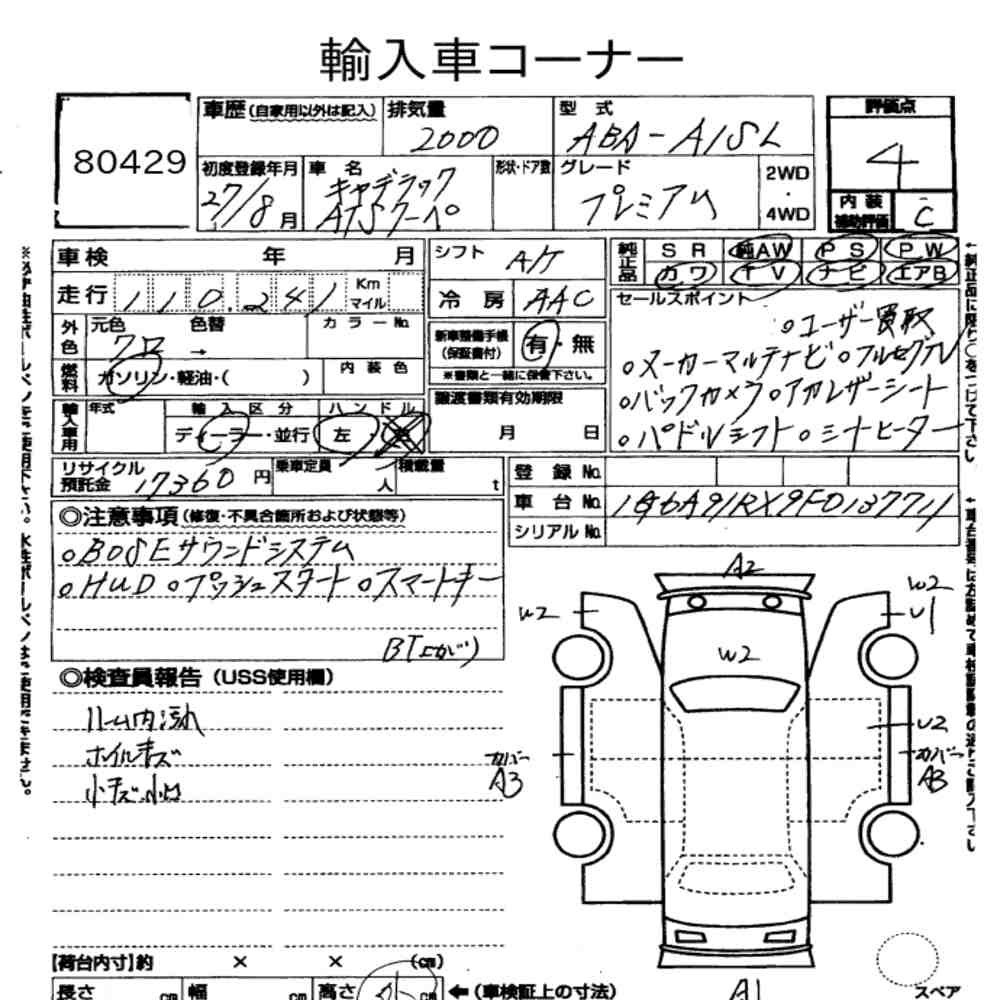 輸入車コーナー
80429
車歴(自家用以外は記入)
排気量
2000
型式
ABA-A1SL
評価点
4
初度登録年月
27/8月
車名
キャデラック
ATSクーペ
形状・ドア数
グレード
プレミアム
2WD
・
4WD
内装
補助評価
C
車検 年 月
シフト A/T
純正品
SR 純AW PS PW
カワ TV ナビ エアB
走行 110,241 Km マイル
冷房 AAC
セールスポイント
○ユーザー買取
○メーカーマルチナビ ○フルセグTV
○バックカメラ ○アカレザーシート
○パドルシフト ○シートヒーター
外色 元色 色替 カラーNo.
クロ →
新車整備手帳
(保証書付)
有・無
※書類と一緒に保管下さい。
燃料 ガソリン・軽油・( )
内装色
譲渡書類有効期限
月 日
輸入車用 年式 輸入区分 ハンドル
ディーラー・並行 左・右
リサイクル
預託金
17360円
乗車定員 人
積載量 t
登録No.
車台No. 1G6A91RX9F0137711
シリアルNo.
◎注意事項(修復・不具合箇所および状態等)
○BOSEサウンドシステム
○HUD ○プッシュスタート ○スマートキー
BT(上がり)
◎検査員報告(USS使用欄)
ルーム内汚れ
ホイルキズ
小キズ・小凹
A2
W2
W2
U1
W2
U2
カバー
A3
カバー
A3
A1
スペア
【荷台内寸】約 × × (cm)
長さ cm 幅 cm 高さ cm ←(車検証上の寸法)